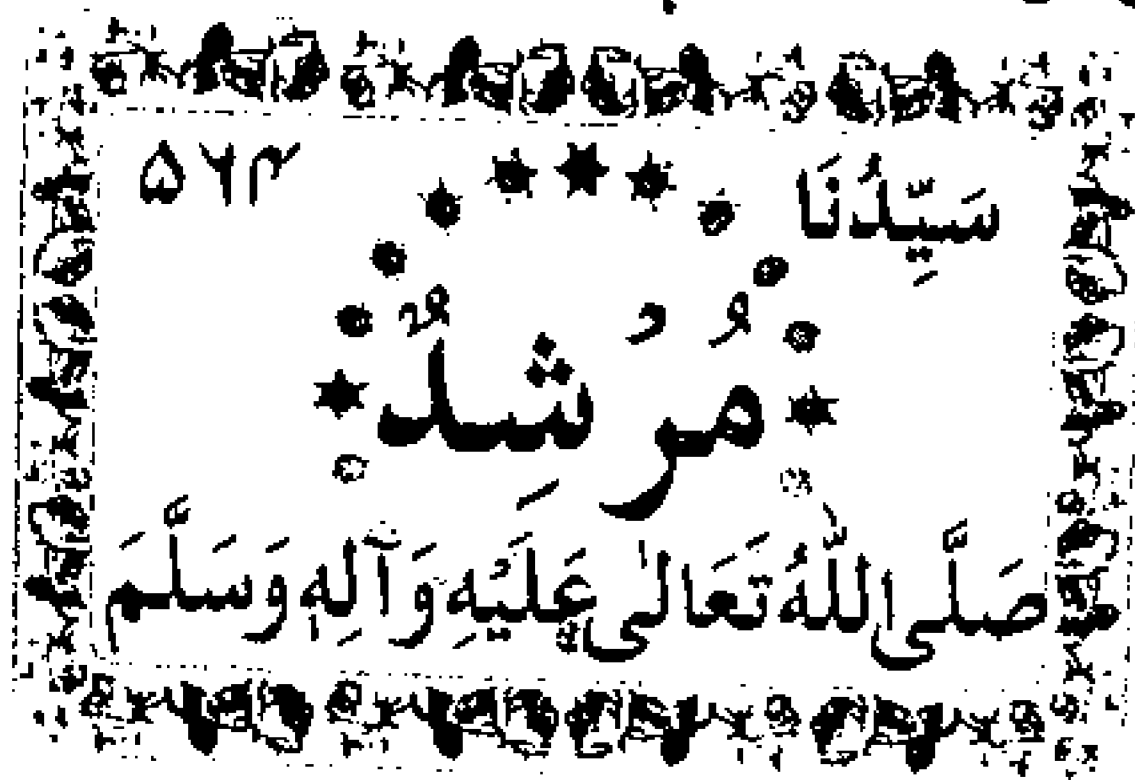 سَيِّدُنَا ۵۶۴
مُرْشِدٌ
صَلَّى اللّٰهُ تَعَالٰى عَلَيْهِ وَآلِهٖ وَسَلَّمَ